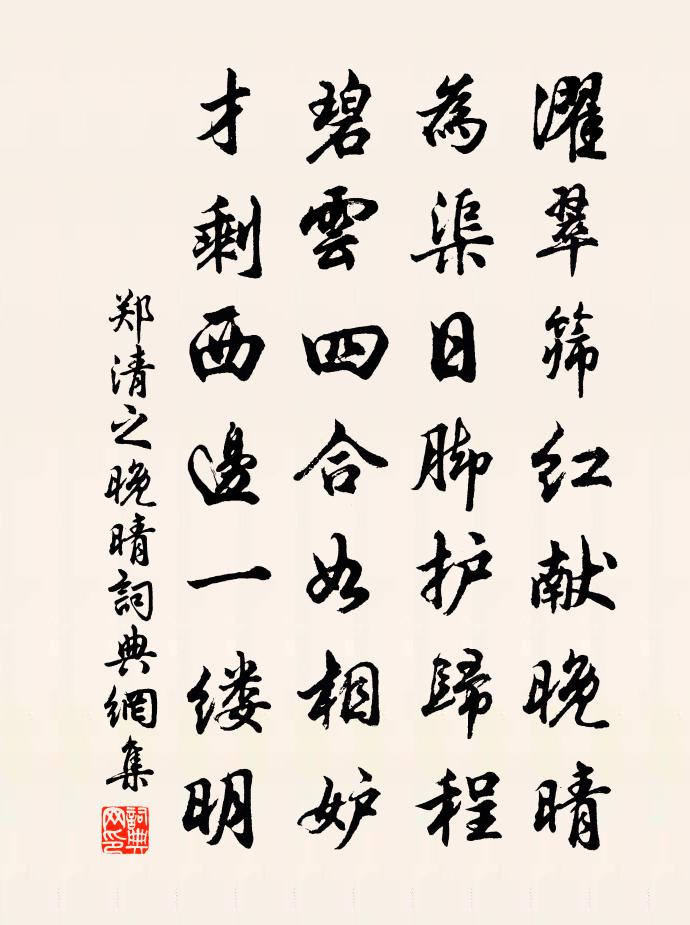 濯翠篩红献晚晴
為渠日脚护歸程
碧雲四合如相妒
才剩西邊一缕明
郑清之晚晴詞典網集
詞典网印